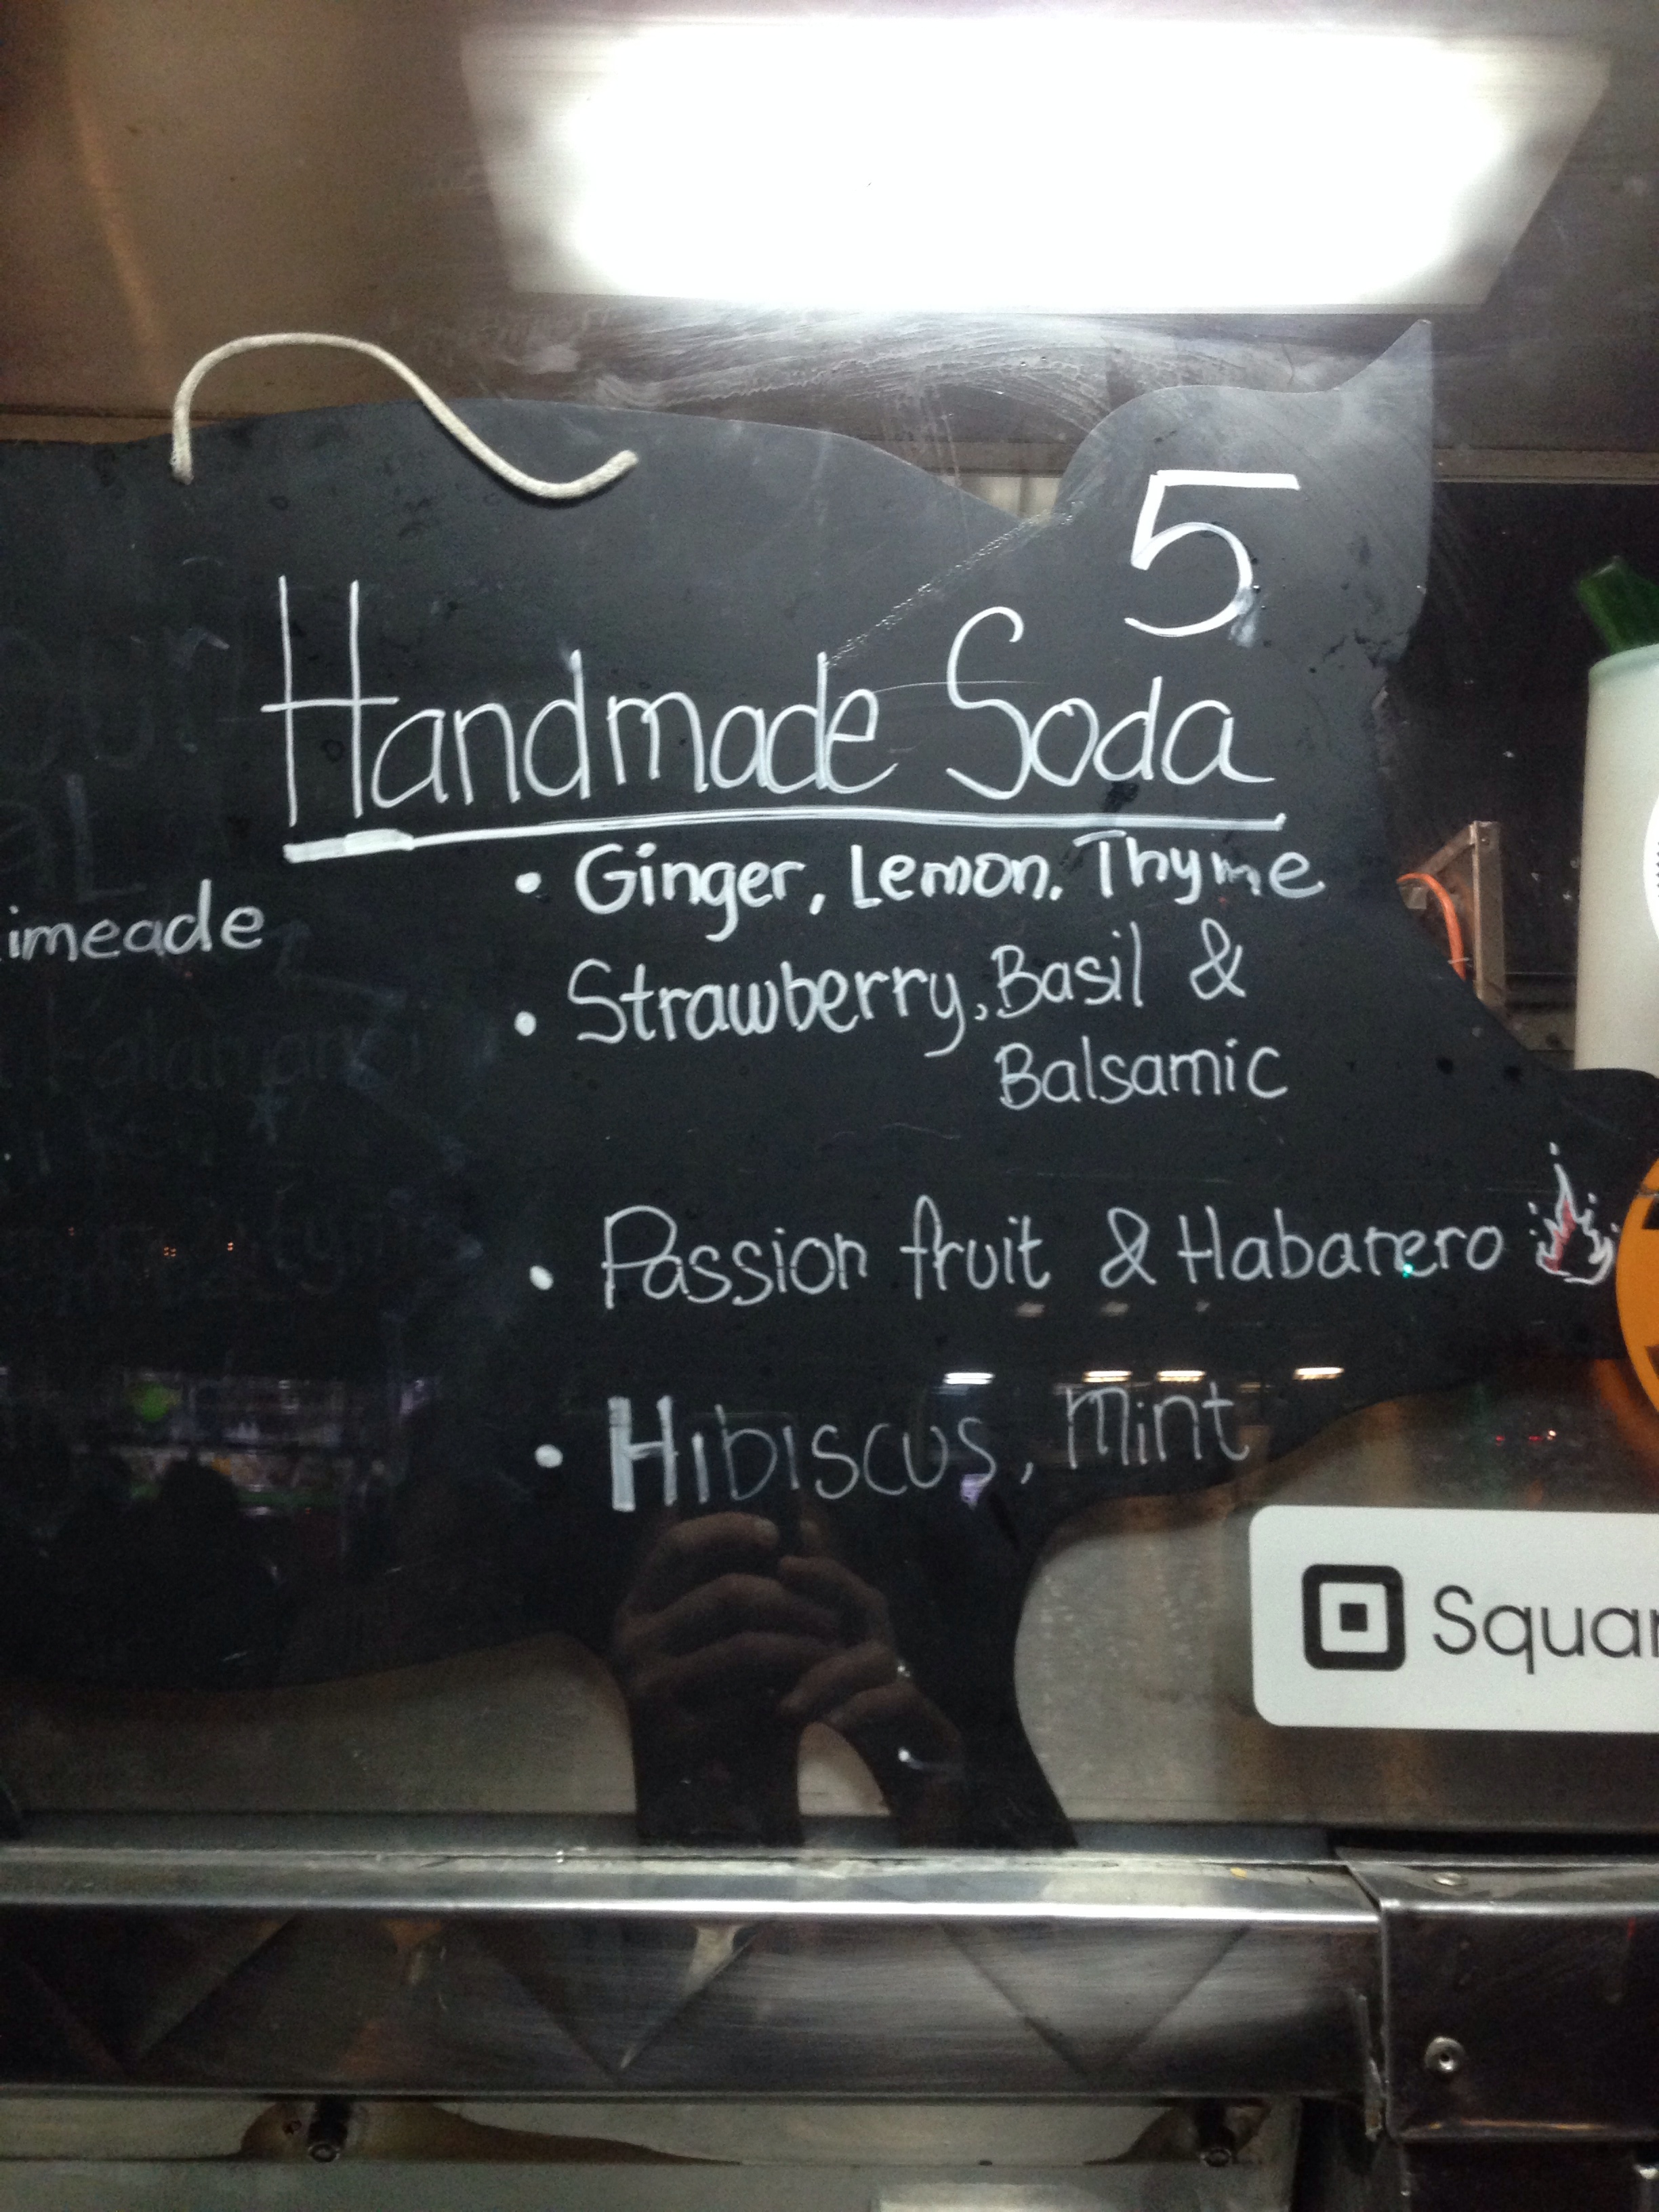 5
Handmade Soda
• Ginger, Lemon, Thyme
imeade
• Strawberry, Basil &
Balsamic
• Passion fruit & Habanero
• Hibiscus, Mint
Squar